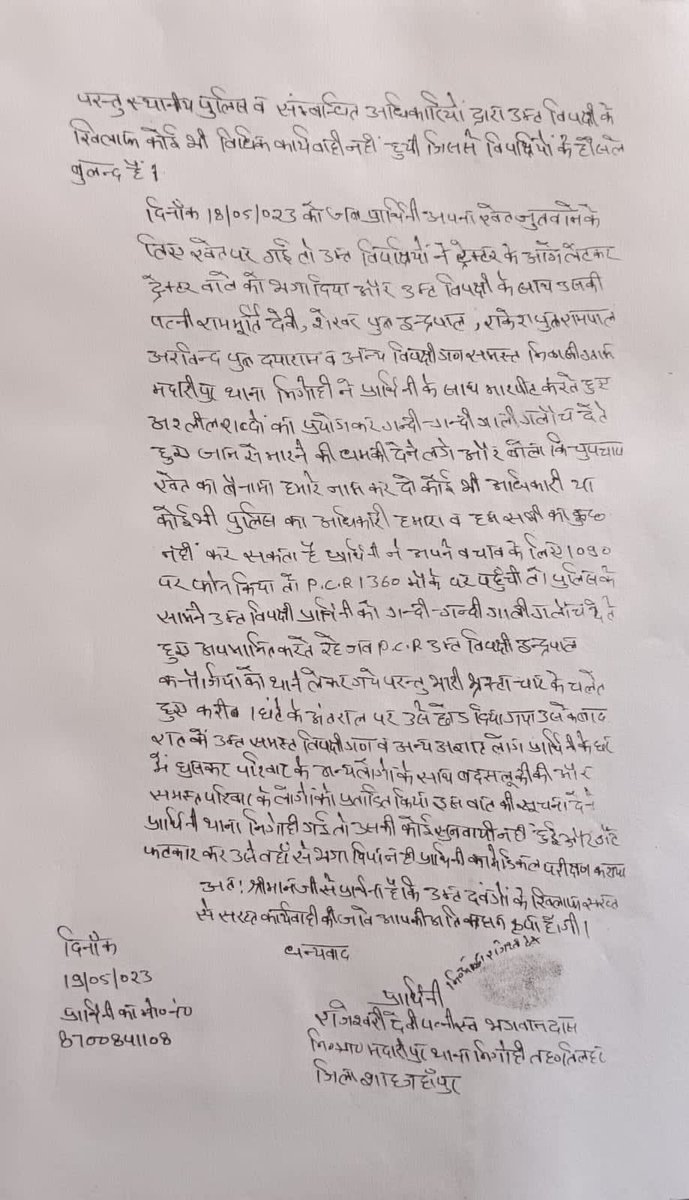 परन्तु स्थानीय पुलिस व सम्बन्धित अधिकारियों द्वारा उक्त विपक्षी के
खिलाफ कोई भी विधिक कार्यवाही नहीं हुयी जिससे विपक्षियों के हौसले
बुलन्द हैं।
दिनाँक 18/05/023 को जब प्रार्थिनी अपना खेत जुतवाने के
लिए खेत पर गई तो उक्त विपक्षियों ने ट्रेक्टर के आगे लेटकर
ट्रेक्टर वाले को भगा दिया और उक्त विपक्षी के साथ उसकी
पत्नी राममूर्ति देवी, शेखर पुत्र इन्द्रपाल, राकेश पुत्र रामपाल
अरविन्द पुत्र दयाराम व अन्य विपक्षीगन समस्त निवासी ग्राम
मदारीपुर थाना निगोही ने प्रार्थिनी के साथ मारपीट करते हुए
अश्लील शब्दों का प्रयोग कर गन्दी-गन्दी गाली गलौच देते
हुए जान से मारने की धमकी देने लगे और बोला कि चुपचाप
खेत का बैनामा हमारे नाम कर दो कोई भी अधिकारी या
कोई भी पुलिस का अधिकारी हमारा व हम सभी का कुछ
नहीं कर सकता है प्रार्थिनी ने अपने बचाव के लिए 1090
पर फोन किया तो P.C.R 1360 मौके पर पहुँची तो पुलिस के
सामने उक्त विपक्षी प्रार्थिनी को गन्दी-गन्दी गाली गलौच देते
हुए अपमानित करते रहे जब P.C.R उक्त विपक्षी इन्द्रपाल
कन्नौजिया को थाने लेकर गये परन्तु भारी भ्रष्टाचार के चलते
हुए करीब 1 घंटे के अंतराल पर उसे छोड़ दिया गया उसके बाद
रात में उक्त समस्त विपक्षीगन व अन्य अज्ञात लोग प्रार्थिनी के घर
में घुसकर परिवार के अन्य लोगों के साथ बदसलूकी की और
समस्त परिवार के लोगों को प्रताडित किया इस बात की सूचना देने
प्रार्थिनी थाना निगोही गई तो उसकी कोई सुनवायी नहीं हुई और डांट
फटकार कर उसे वहाँ से भगा दिया न ही प्रार्थिनी का मेडिकल परीक्षण कराया
अतः श्रीमान जी से प्रार्थना है कि उक्त दबंगों के खिलाफ सख्त
से सख्त कार्यवाही की जावे आपकी अति कृपा होगी।
दिनाँक
धन्यवाद
19/05/023
प्रार्थिनी का मो० नं०
8700841108
प्रार्थिनी
राजेश्वरी देवी पत्नी स्व भगवानदास
नि० ग्राम मदारीपुर थाना निगोही तह० तिलहर
जिला शाहजहाँपुर